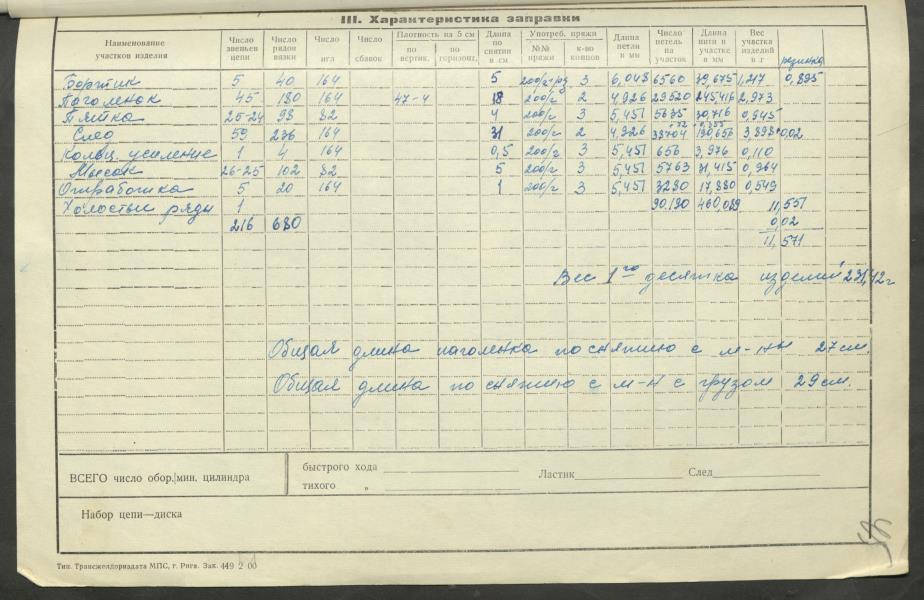 III. Характеристика заправки
Наименование участков изделия | Число звеньев цепи | Число рядов вязки | Число игл | Число сбавок | Плотность на 5 см: по вертик. | по горизонт. | Длина по снятии в см | Употреб. пряжи: №№ пряжи | к-во концов | Длина петли в мм | Число петель на участок | Длина нити в участке в мм | Вес участка изделий в г | резинка
Бортик 5 40 164 5 200/2 3 6,048 6560 39,675 1,217 0,895
Паголенок 45 180 164 47-4 18 200/2 2 4,926 29520 145416 2,973
Пятка 25-24 98 82 4 200/2 3 5,451 5635 30,716 0,945
След 59 236 164 31 200/2 2 4,926 38704 190656 3,898 0,02
кольц. усиление 1 4 164 0,5 200/2 3 5,451 656 3,976 0,110
Мысок 26-25 102 82 5 200/2 3 5,451 5763 31,415 0,964
Отработка 5 20 164 1 200/2 3 5,451 3280 17,880 0,549
Холостые ряды 1 90.190 460,089 11,551
216 680 0,02
11,571
Вес 1го десятка изделий 231,42 г
Общая длина паголенка по снятию с м-ны 27 см.
Общая длина по снятию с м-н с грузом 29 см.
ВСЕГО число обор./мин. цилиндра
быстрого хода
тихого „
Ластик
След
Набор цепи—диска
Тип. Трансжелдориздата МПС, г. Рига. Зак. 449 2 00